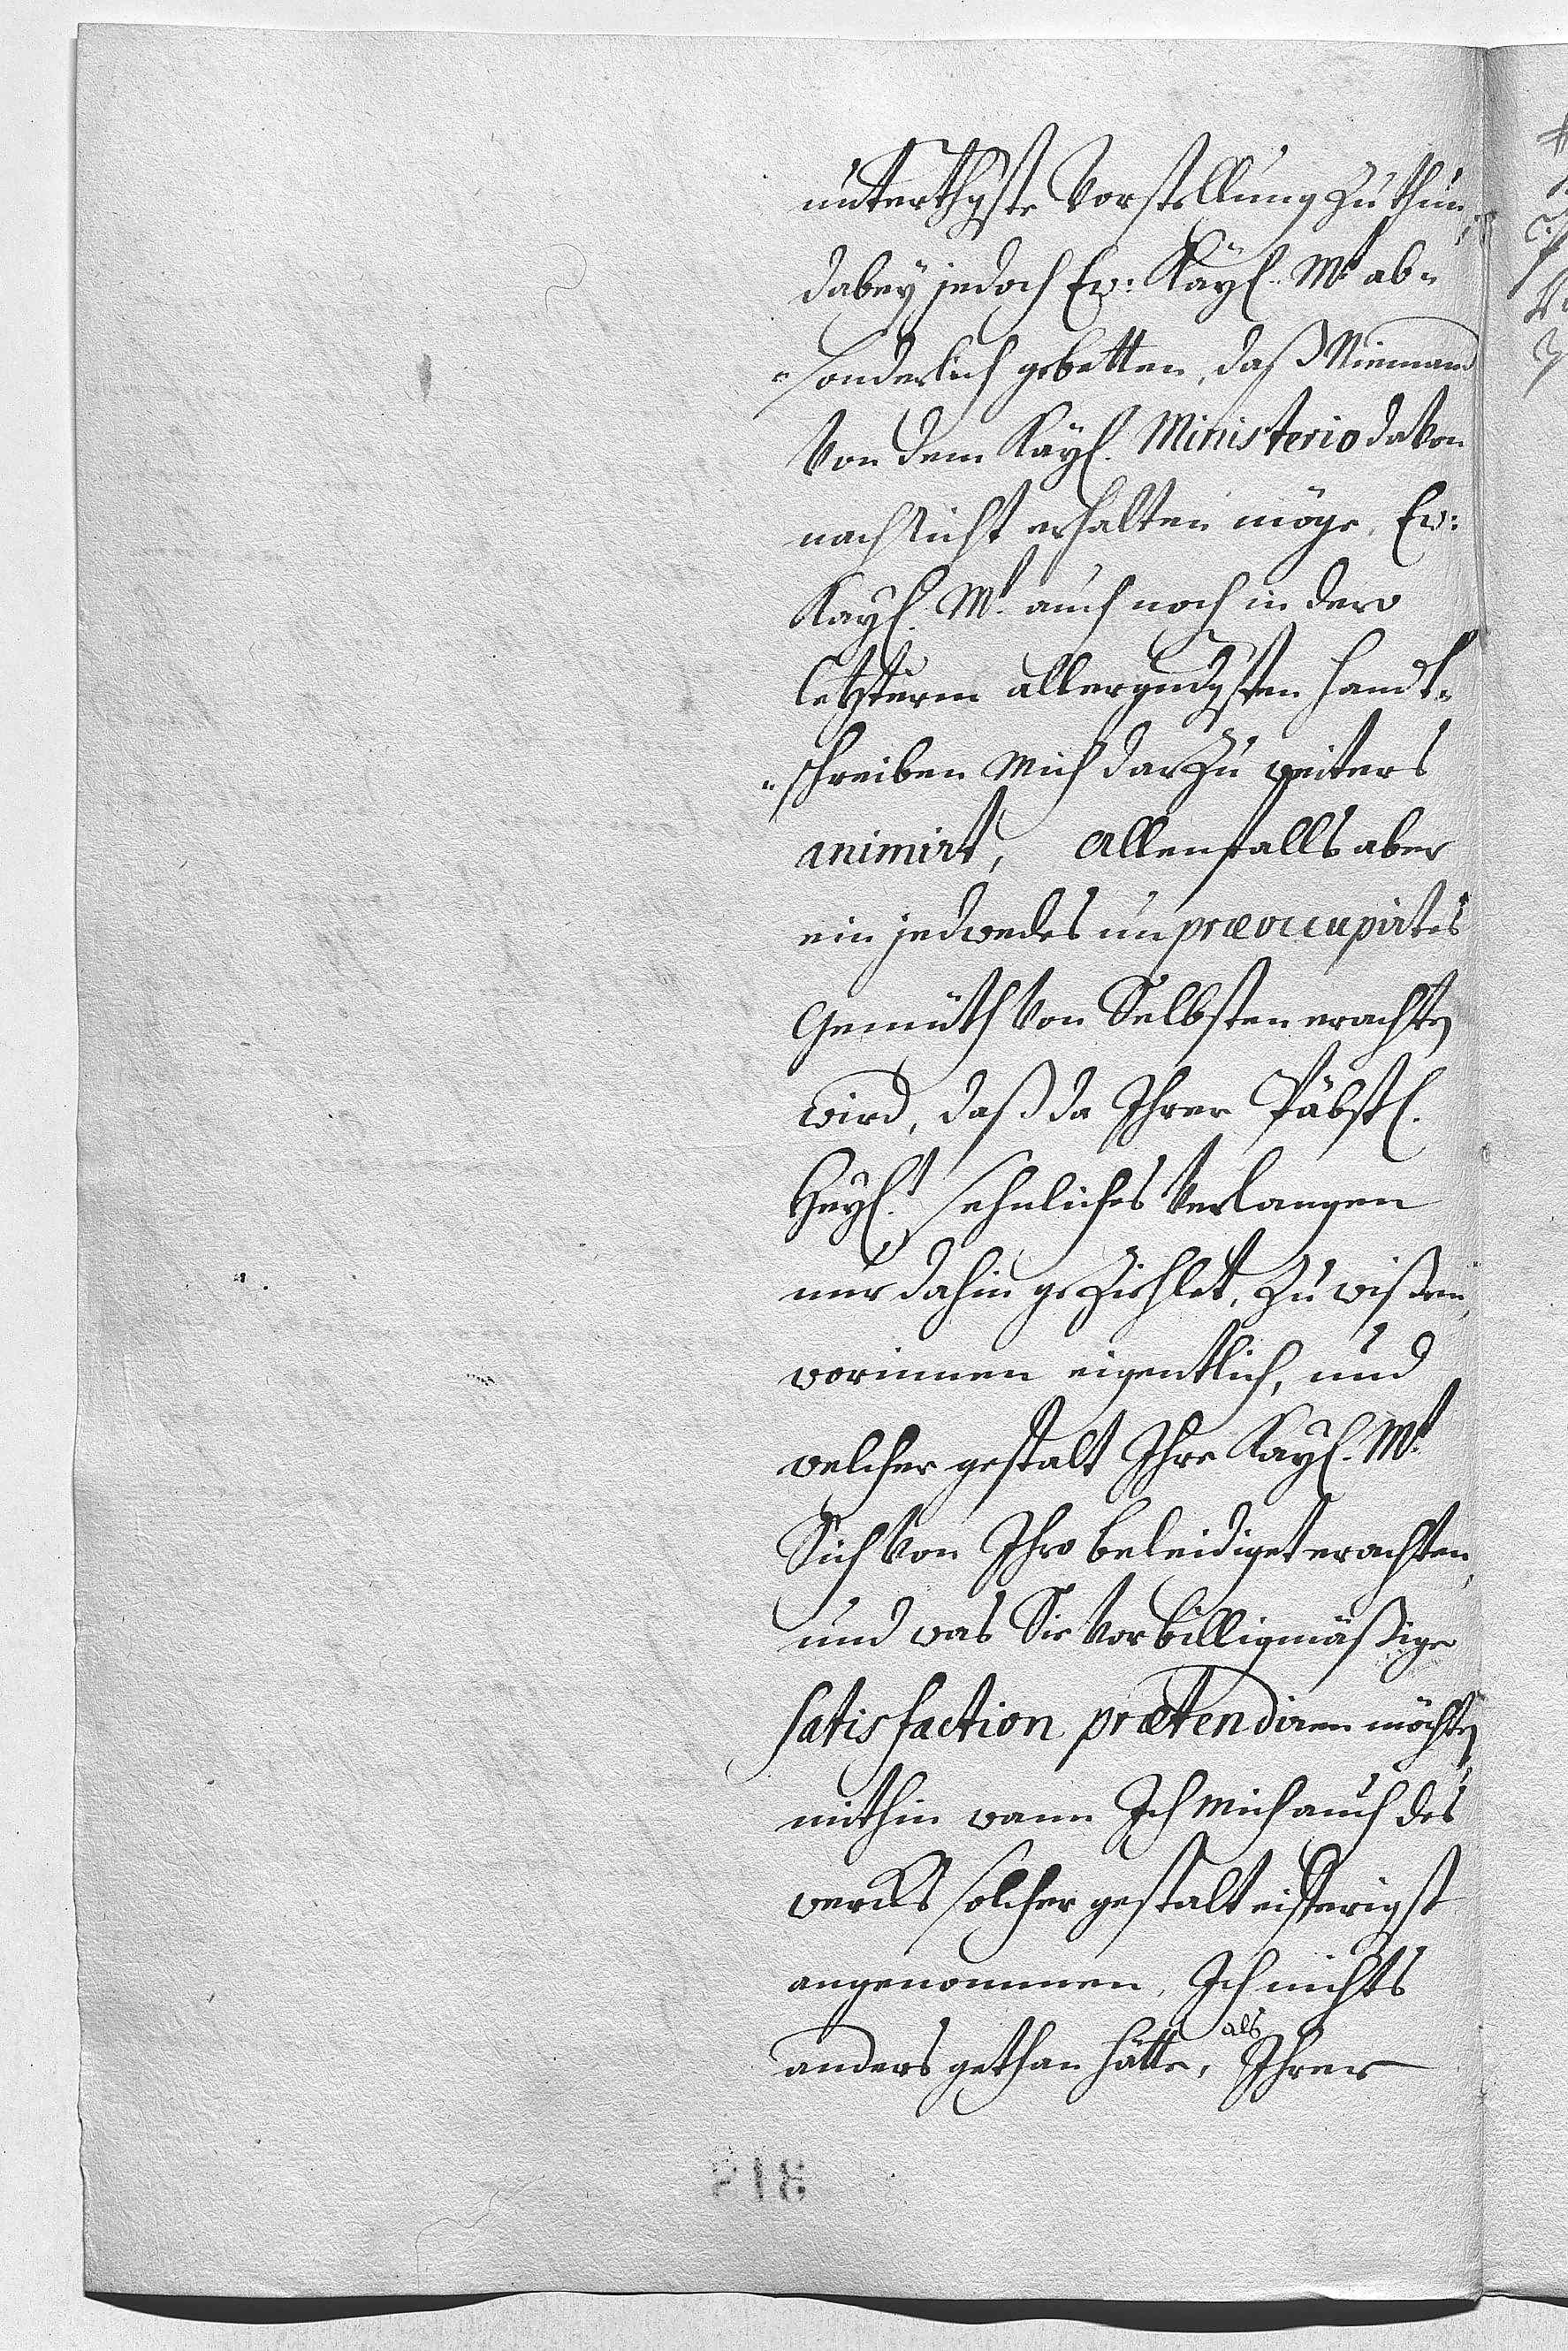 unterthgste Vorstellung zu thun,
dabey jedoch Ew: Kayl. Mt. ab-
-sonderlich gebetten, daß Niemand
von dem Kayl. Ministerio davon
nachricht erhalten möge, Ew:
Kayl. Mt. auch noch in dero
letzterm allergndgsten handt-
-schreiben mich darzu weiters
animirt, allenfalls aber
ein jedwedes unpræoccupirtes
Gemüth von Selbsten erachten
wird, daß da Ihrer Päbstl.
Heyl.t sehnliches verlangen
nur dahin geziehlet, zu wißen,
worinnen eigentlich, und
welcher gestalt Ihre Kayl. Mt.
Sich von Ihro beleidiget erachten,
und was Sie vor billigmäßige
satisfaction prætendiren möchten
mithin wann Ich mich auch des
wercks solcher gestalt eifferigst
angenommen, Ich nichts
anders gethan hätte, als Ihrer
218